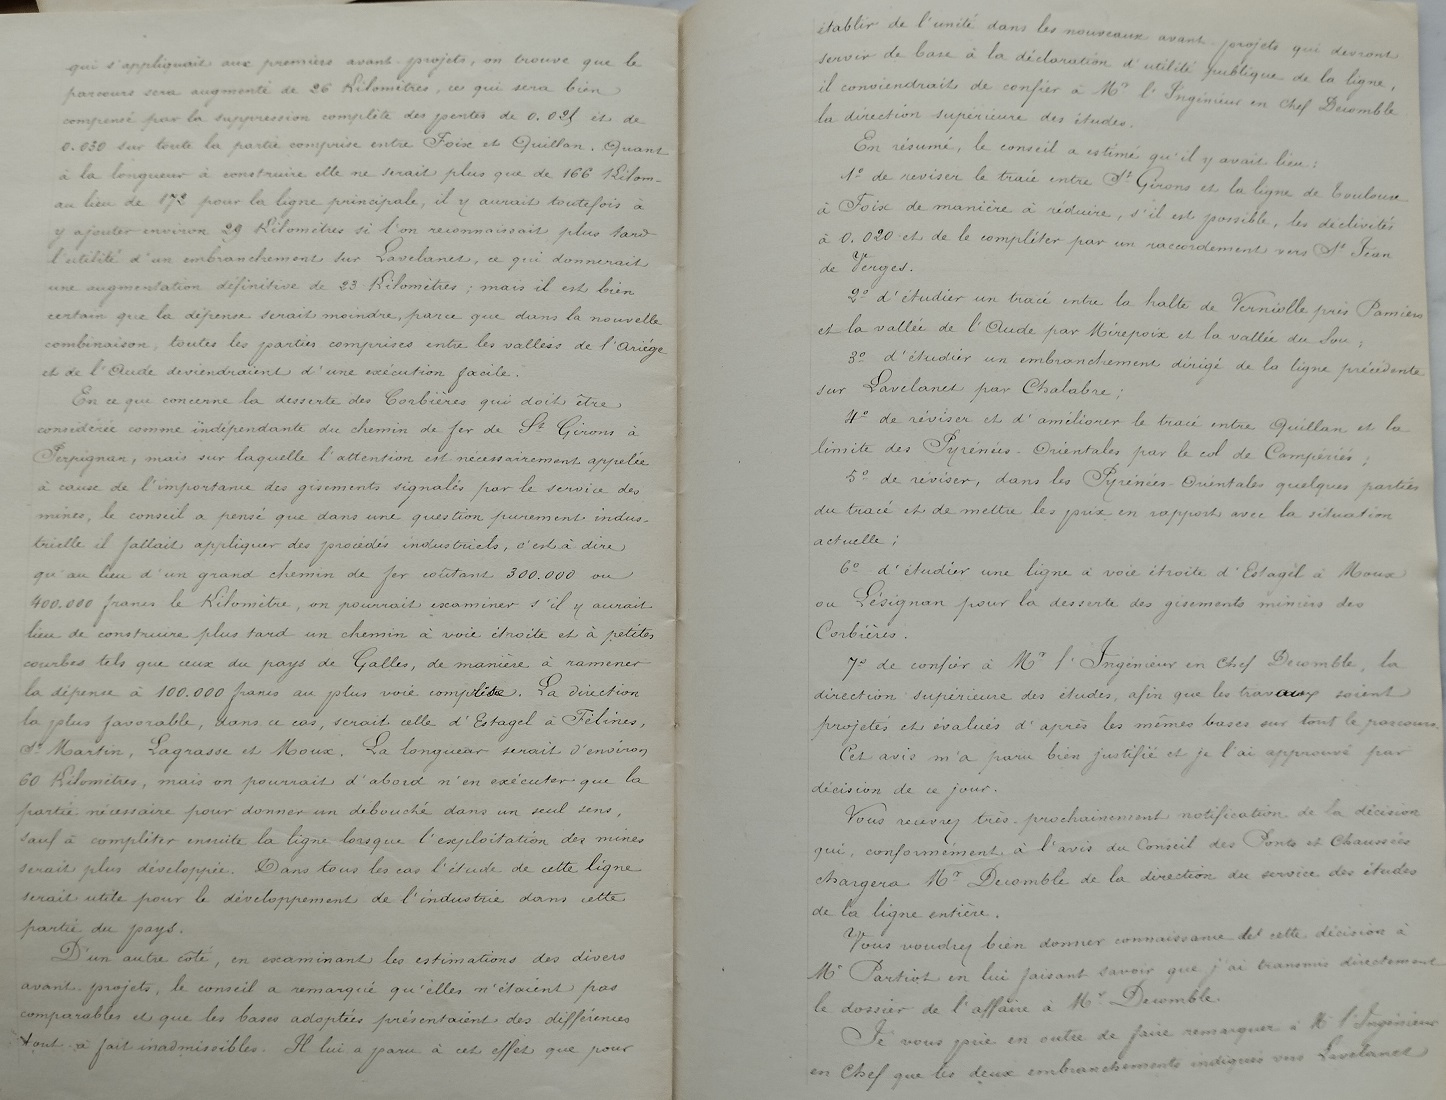 qui s'appliquait aux premiers avant-projets, on trouve que le
parcours sera augmenté de 26 Kilomètres, ce qui sera bien
compensé par la suppression complète des pentes de 0.025 et de
0.030 sur toute la partie comprise entre Foix et Quillan. Quant
à la longueur à construire elle ne serait plus que de 166 Kilom-
au lieu de 172 pour la ligne principale, il y aurait toutefois à
y ajouter environ 29 Kilomètres si l'on reconnaissait plus tard
l'utilité d'un embranchement sur Lavelanet, ce qui donnerait
une augmentation définitive de 23 Kilomètres ; mais il est bien
certain que la dépense serait moindre, parce que dans la nouvelle
combinaison, toutes les parties comprises entre les vallées de l'Ariége
et de l'Aude deviendraient d'une exécution facile.
En ce que concerne la desserte des Corbières qui doit être
considérée comme indépendante du chemin de fer de St Girons à
Perpignan, mais sur laquelle l'attention est nécessairement appelée
à cause de l'importance des gisements signalés par le service des
mines, le conseil a pensé que dans une question purement indus-
trielle il fallait appliquer des procédés industriels, c'est à dire
qu'au lieu d'un grand chemin de fer coûtant 300.000 ou
400.000 francs le Kilomètre, on pourrait examiner s'il y aurait
lieu de construire plus tard un chemin à voie étroite et à petites
courbes tels que ceux du pays de Galles, de manière à ramener
la dépense à 100.000 francs au plus voie comprise. La direction
la plus favorable, dans ce cas, serait celle d'Estagel à Félines,
St Martin, Lagrasse et Moux. La longueur serait d'environ
60 Kilomètres, mais on pourrait d'abord n'en exécuter que la
partie nécessaire pour donner un débouché dans un seul sens,
sauf à compléter ensuite la ligne lorsque l'exploitation des mines
serait plus développée. Dans tous les cas l'étude de cette ligne
serait utile pour le développement de l'industrie dans cette
partie du pays.
D'un autre côté, en examinant les estimations des divers
avant-projets, le conseil a remarqué qu'elles n'étaient pas
comparables et que les bases adoptées présentaient des différences
tout à fait inadmissibles. Il lui a paru à cet effet que pour
établir de l'unité dans les nouveaux avant-projets qui devront
servir de base à la déclaration d'utilité publique de la ligne,
il conviendrait de confier à Mr l'Ingénieur en chef Decomble
la direction supérieure des études.
En résumé, le conseil a estimé qu'il y avait lieu :
1º de reviser le tracé entre St Girons et la ligne de Toulouse
à Foix de manière à réduire, s'il est possible, les déclivités
à 0.020 et de le compléter par un raccordement vers St Jean
de Verges.
2º d'étudier un tracé entre la halte de Verniolle près Pamiers
et la vallée de l'Aude par Mirepoix et la vallée du Sou ;
3º d'étudier un embranchement dirigé de la ligne précédente
sur Lavelanet par Chalabre ;
4º de réviser et d'améliorer le tracé entre Quillan et la
limite des Pyrénées-Orientales par le col de Campériés ;
5º de réviser, dans les Pyrénées-Orientales quelques parties
du tracé et de mettre les prix en rapport avec la situation
actuelle ;
6º d'étudier une ligne à voie étroite d'Estagel à Moux
ou Lésignan pour la desserte des gisements miniers des
Corbières.
7º de confier à Mr l'Ingénieur en chef Decomble, la
direction supérieure des études, afin que les travaux soient
projetés et évalués d'après les mêmes bases sur tout le parcours.
Cet avis m'a paru bien justifié et je l'ai approuvé par
décision de ce jour.
Vous recevrez très-prochainement notification de la décision
qui, conformément à l'avis du Conseil des Ponts et Chaussées
chargera Mr Decomble de la direction du service des études
de la ligne entière.
Vous voudrez bien donner connaissance de cette décision à
Mr Partiot en lui faisant savoir que j'ai transmis directement
le dossier de l'affaire à Mr Decomble
Je vous prie en outre de faire remarquer à M l'Ingénieur
en Chef que les deux embranchements indiqués vers Lavelanet